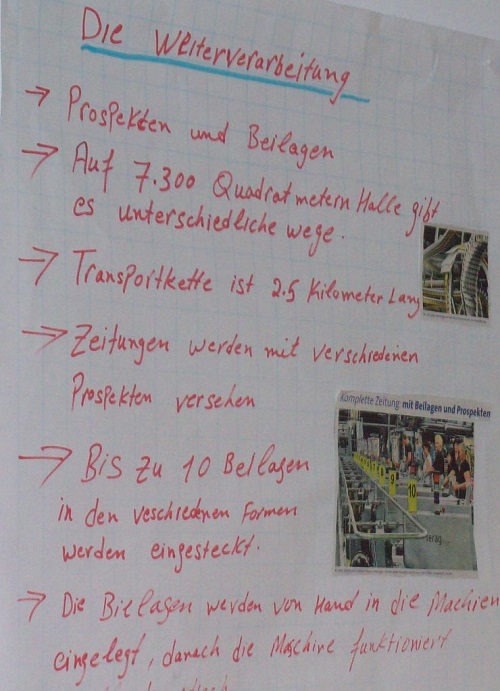 Die Weiterverarbeitung
→ Prospekten und Beilagen
→ Auf 7.300 Quadratmetern Halle gibt
es unterschiedliche wege.
→ Transportkette ist 2.5 Kilometer Lang
→ Zeitungen werden mit verschiedenen
Prospekten versehen
Komplette Zeitung: mit Beilagen und Prospekten
9
10
→ Bis zu 10 Beilagen
in den veschiedenen Formen
werden eingesteckt.
→ Die Bielagen werden von Hand in die Machien
eingelegt, danach die Maschine funktioniert